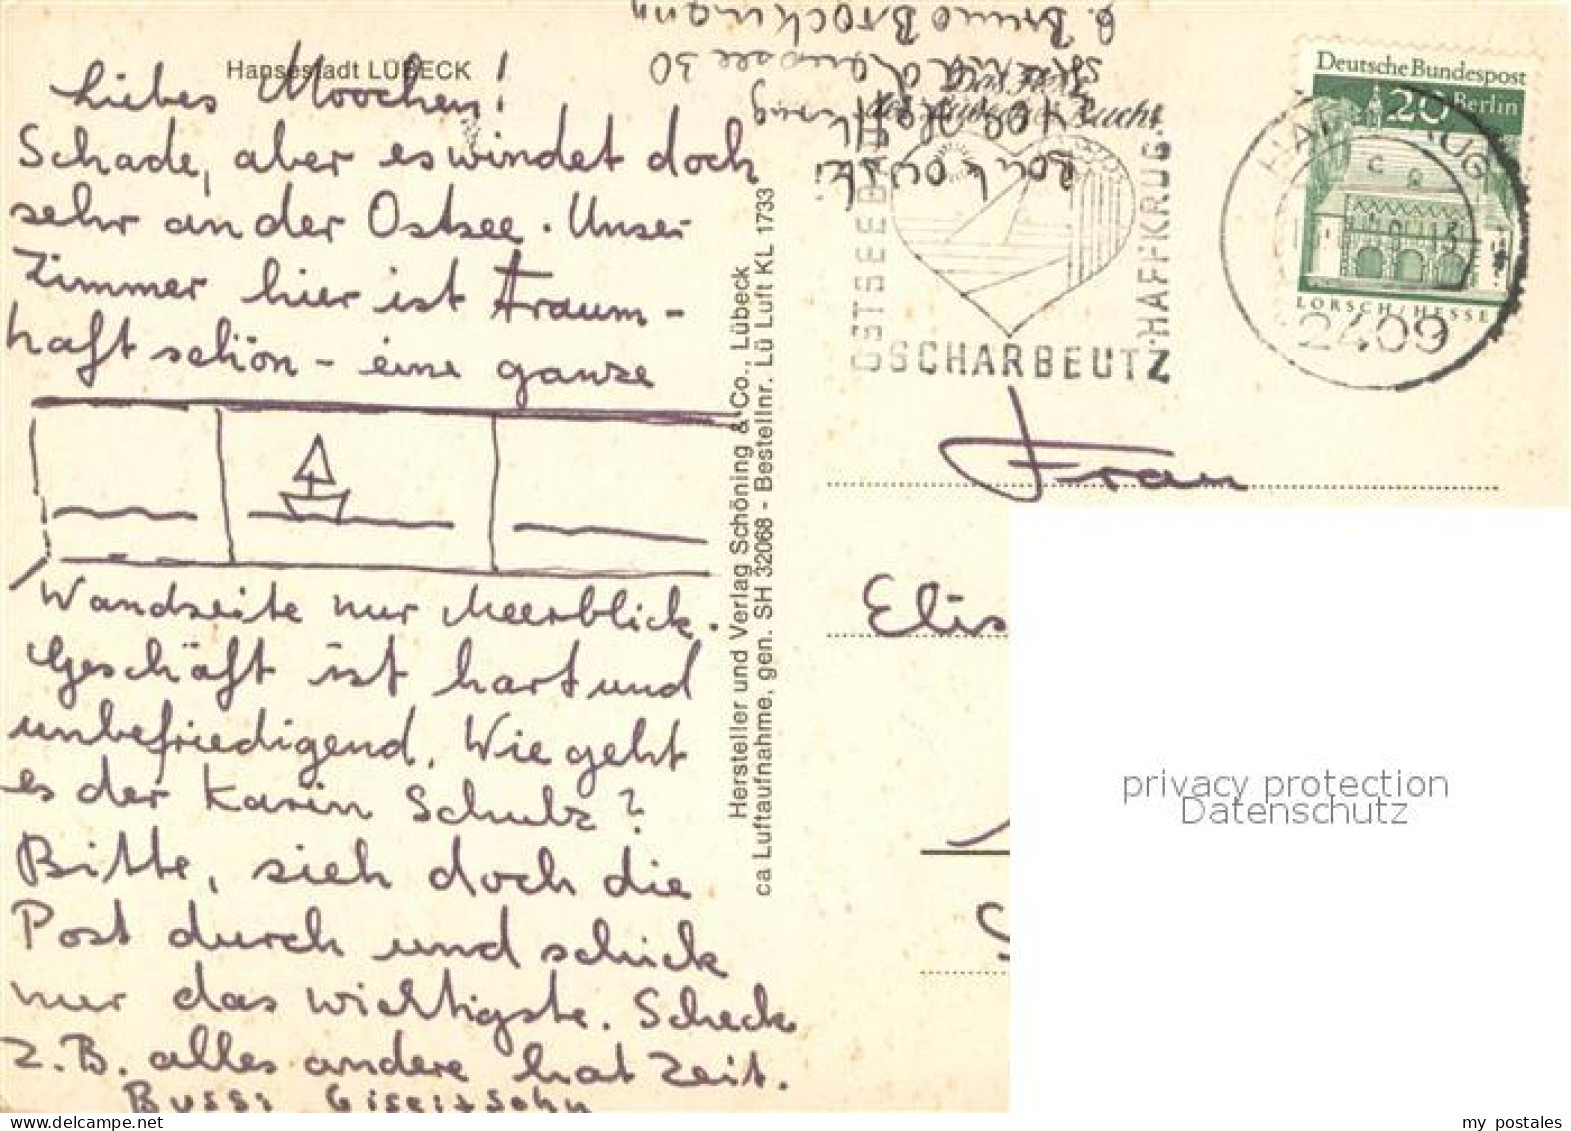 Hansestadt LÜBECK
Liebes Moochen!
Schade, aber es windet doch
sehr an der Ostsee. Unser
Zimmer hier ist traum-
haft schön - eine ganze
Wandseite nur Meerblick.
Geschäft ist hart und
unbefriedigend. Wie geht
es der Karin Schulz?
Bitte, sieh doch die
Post durch und schick
nur das wichtigste. Scheck
z.B. alles andere hat Zeit.
Bussi
Hersteller und Verlag Schöning & Co., Lübeck
ca Luftaufnahme, gen. SH 32068 - Bestellnr. Lü Luft KL 1733
b. Bruno Brockmann
30
OSTSEEB
SCHARBEUTZ
HAFFKRUG
Deutsche Bundespost
20 Berlin
LORSCH/HESSE
2409
Frau
Elis
privacy protection
Datenschutz
my postales